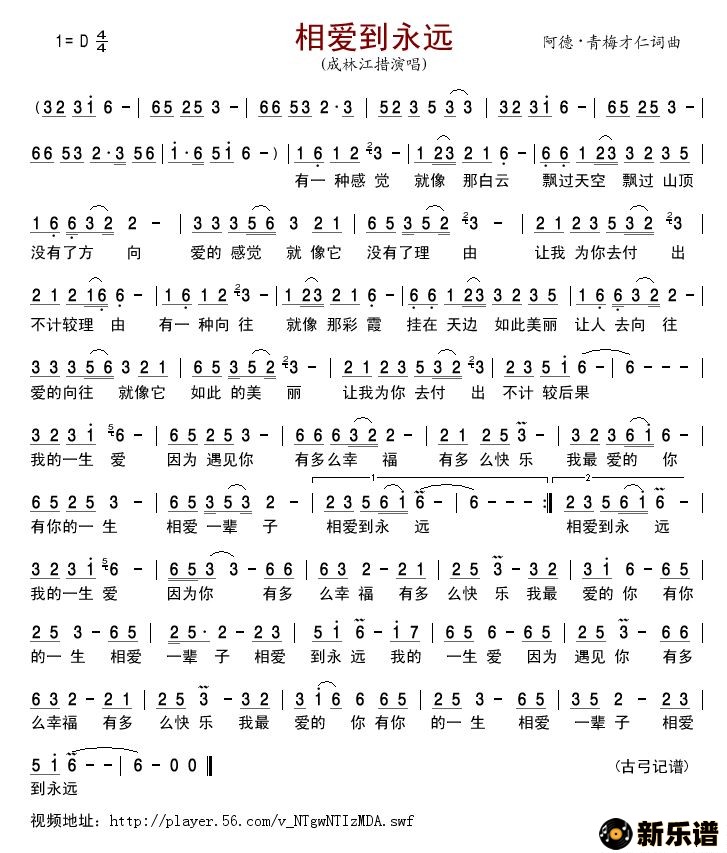 1= D 4/4
相爱到永远
阿德·青梅才仁词曲
(成林江措演唱)
(3 2 3 1 6 - | 6 5 2 5 3 - | 6 6 5 3 2 · 3 | 5 2 3 5 3 3 | 5 3 2 1 2 - |
6 6 5 3 2 · 3 5 6 | 1 · 6 5 1 6 - ) | 1 6 1 2 2 3 - | 1 2 3 2 1 6 - | 6 6 1 2 3 3 2 3 5 |
有一 种感 觉 就像 那白云 飘过天空 飘过 山顶
1 6 6 3 2 2 - | 3 3 3 5 6 3 2 1 | 6 5 3 5 2 2 3 - | 2 1 2 3 5 3 2 2 3 |
没有了方 向 爱的 感觉 就 像它 没有了理 由 让我 为你去付 出
2 1 2 1 6 6 - | 1 6 1 2 2 3 - | 1 2 3 2 1 6 - | 6 6 1 2 3 3 2 3 5 | 1 6 6 3 2 2 - |
不计较理 由 有一 种向 往 就像 那彩 霞 挂在 天边 如此美丽 让人 去向 往
3 3 3 5 6 3 2 1 | 6 5 3 5 2 2 3 - | 2 1 2 3 5 3 2 2 3 | 1 2 3 5 1 6 - | 6 - - - |
爱的向往 就像它 如此 的美 丽 让我为你 去付 出 不计 较后果
3 2 3 1 5 6 - | 6 5 2 5 3 - | 6 6 6 3 2 2 - | 2 1 2 5 3 - | 3 2 3 6 1 6 - |
我的一生 爱 因为 遇见你 有多么幸 福 有多 么快乐 我最 爱的 你
1 2
6 5 2 5 3 - | 6 5 3 5 3 - | 2 3 5 6 1 6 - | 6 - - - :| 2 3 5 6 1 6 - |
有你的一 生 相爱 一辈 子 相爱到永 远 相爱到永 远
3 2 3 1 5 6 - | 6 5 3 3 - 6 6 | 6 3 2 - 2 1 | 2 5 3 - 3 2 | 3 1 6 - 6 5 |
我的一生 爱 因为你 有多 么幸福 有多 么快 乐我最 爱的 你 有你
2 5 3 - 6 5 | 2 5 · 2 - 2 3 | 5 1 6 - 1 7 | 6 5 6 - 6 5 | 2 5 3 - 6 6 |
的 一生 相爱 一辈 子 相爱 到永 远 我的 一生 爱 因为 遇见 你 有多
6 3 2 - 2 1 | 2 5 3 - 3 2 | 3 1 6 6 6 5 | 2 5 3 - 6 5 | 3 5 3 - 2 3 |
么幸福 有多 么快 乐 我最 爱的 你 有你 的 一 生 相爱 一辈 子 相爱
5 1 6 - - | 6 - 0 0 ‖
(古弓记谱)
到永远
视频地址: http://player.56.com/v_NTgwNTIzMDA.swf
新乐谱